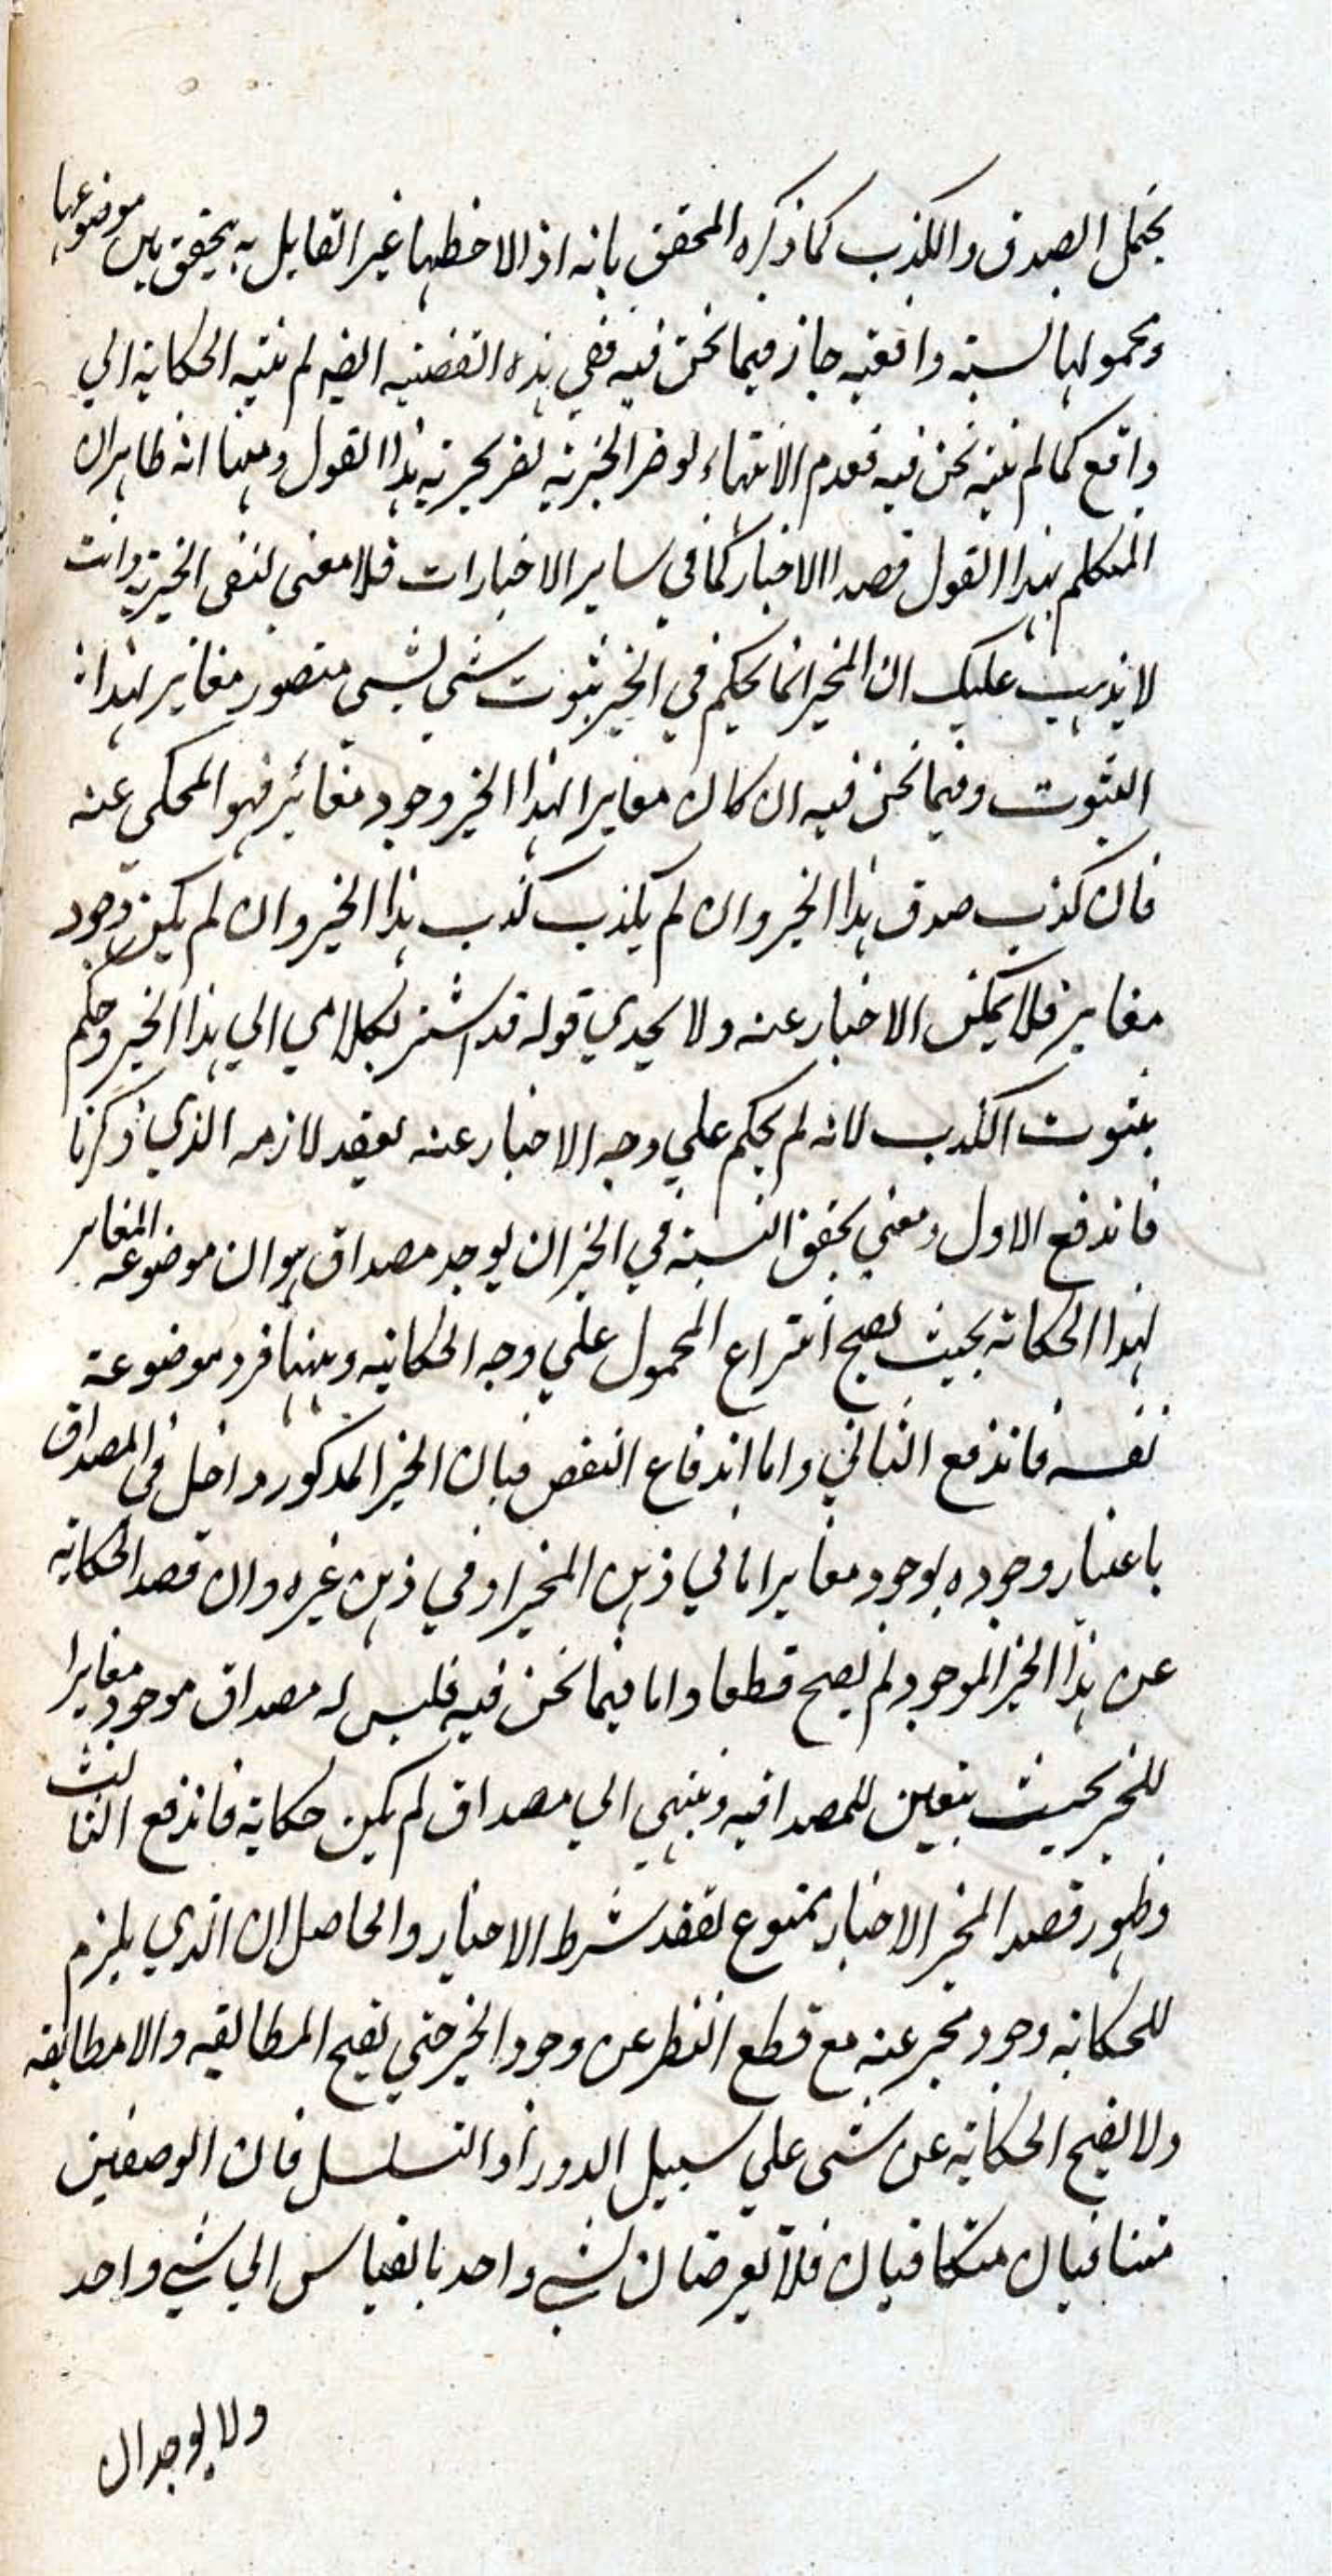 يحتمل الصدق والكذب كما ذكره المحقق بانه اذا لاحظها غير القايل به يحقق بين موضوعها
ومحمولها نسبته واقعيه جاز فيما نحن فيه ففي هذه القضيه ايضا لم ينته الحكاية الي
واقع كما لم ينته نحن فيه فعدم الانتهاء لو ضر الخبريه لضر بخبرية هذا القول وههنا انه ظاهر ان
المتكلم بهذا القول قصد الاخبار كما في ساير الاخبارات فلا معني لنفي الخبرية وانت
لا يذهب عليك ان المخبر انما يحكم في الخبر بثبوت شي لشي متصور مغاير لهذا
الثبوت وفيما نحن فيه ان كان مغايرا لهذا الخبر وجود مغائر فهو المحكي عنه
فان كذب صدق هذا الخبر وان لم يكذب كذب هذا الخبر وان لم يكن وجود
مغاير فلا يمكن الاخبار عنه ولا يجدي قوله قد اشير بكلامي الي هذا الخبر وحكم
بثبوت الكذب لانه لم يحكم علي وجه الاخبار عنه لفقد لازمه الذي ذكرنا
فاندفع الاول ومعني تحقق النسبة في الخبر ان يوجد مصداق هو ان موضوعه المغاير
لهذا الحكاية بحيث يصح انتزاع المحمول علي وجه الحكاية وههنا فرد موضوعة
نفسه فاندفع الثاني واما اندفاع النقض فبان الخبر المذكور داخل في المصداق
باعتبار وجوده بوجود مغاير اما في ذهن المخبر او في ذهن غيره وان قصد الحكاية
عن هذا الخبر الموجود لم يصح قطعا واما فيما نحن فيه فليس له مصداق موجود مغايرا
للخبر بحيث يتعين للمصداقيه وينتهي الي مصداق لم يكن حكاية فاندفع الثالث
وظهور قصد المخبر الاخبار ممنوع لفقد شرط الاخبار والحاصل ان الذي يلزم
للحكاية وجود مخبر عنه مع قطع النظر عن وجود الخبر حتي يصح المطابقه والامطابقه
ولا يصح الحكاية عن شي علي سبيل الدور او التسلسل فان الوصفين
متنافيان متكافيان فلا يعرضان لشي واحد بالقياس الي شي واحد
ولا يوجدان